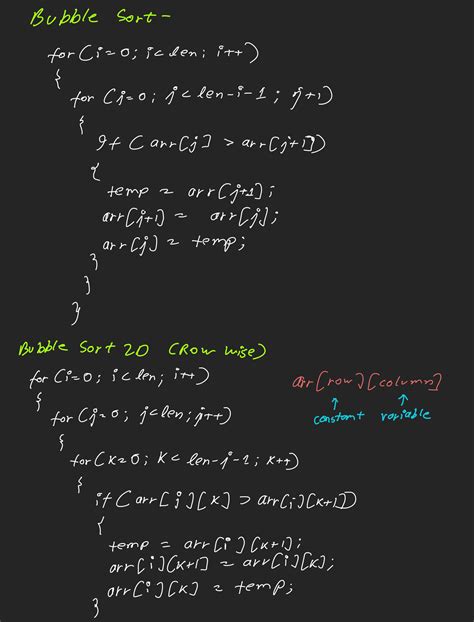 Bubble Sort -
for (i=0; i<len; i++)
{
for (j=0; j<len-i-1; j+1)
{
If (arr[j] > arr[j+1])
{
temp = arr[j+1];
arr[j+1] = arr[j];
arr[j] = temp;
}
}
}
Bubble Sort 2D (Row wise)
for (i=0; i<len; i++)
{
for (j=0; j<len; j++)
{
for (k=0; k<len-j-1; k++)
{
if (arr[j][k] > arr[i][k+1])
{
temp = arr[i][k+1];
arr[i][k+1] = arr[i][k];
arr[i][k] = temp;
}
arr[row][column]
↑ ↑
constant variable